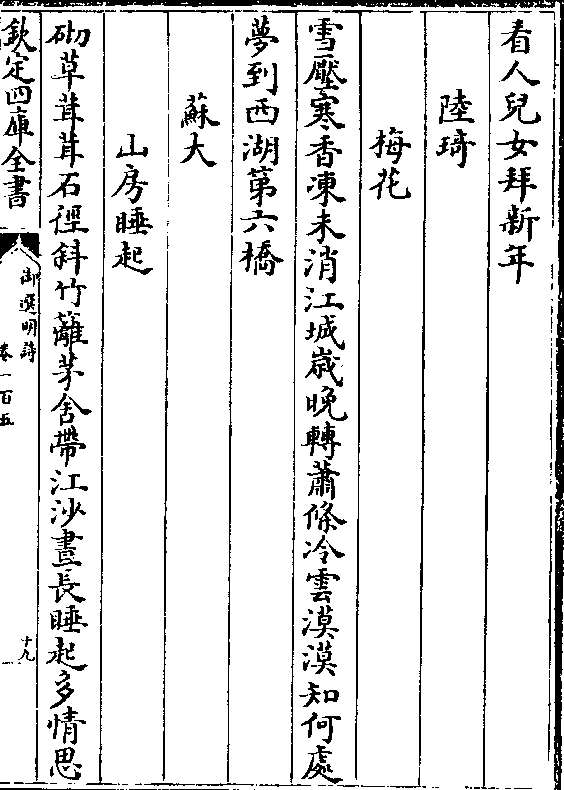 看人兒女拜新年
陸琦
梅花
雪壓寒香凍未消江城歳晚轉蕭條冷雲漠漠知何處
夢到西湖第六橋
蘇大
山房睡起
砌草茸茸石徑斜竹籬茅舍帶江沙晝長睡起多情思
欽定四庫全書
御選明詩
卷一百五
十九